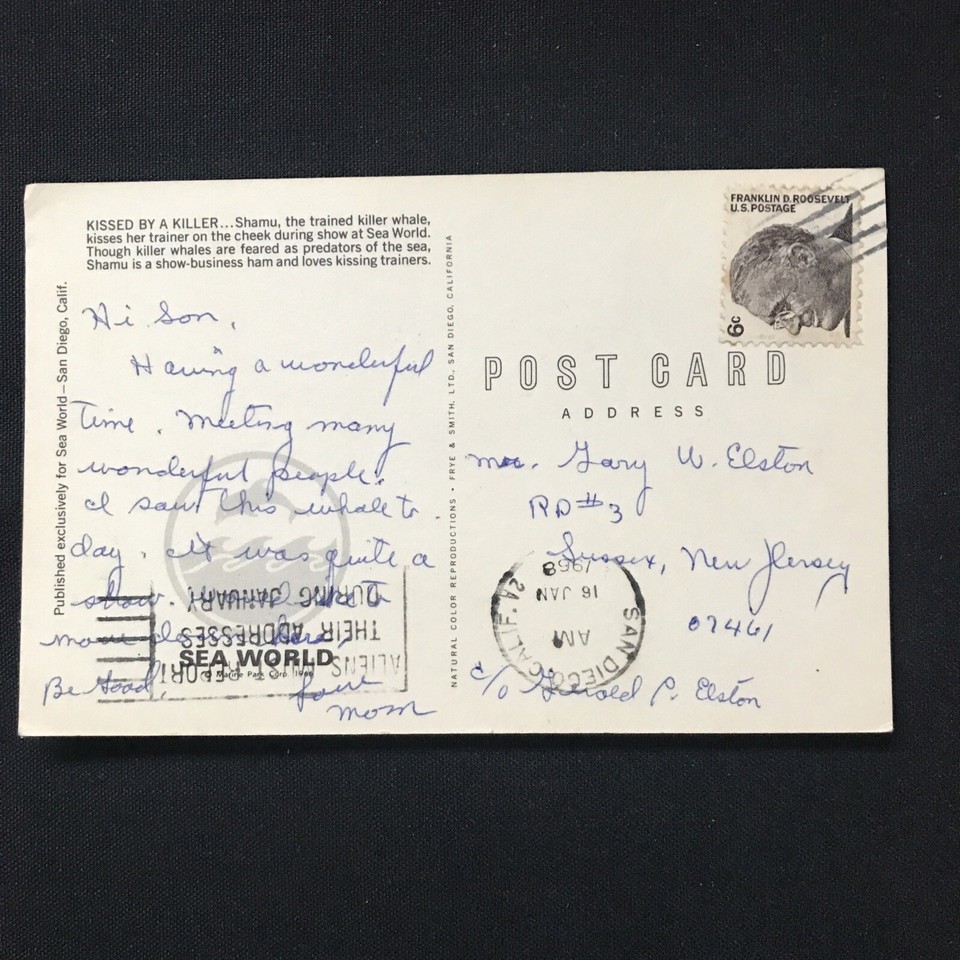 KISSED BY A KILLER...Shamu, the trained killer whale,
kisses her trainer on the cheek during show at Sea World.
Though killer whales are feared as predators of the sea,
Shamu is a show-business ham and loves kissing trainers.
Published exclusively for Sea World – San Diego, Calif.
Hi Son,
Having a wonderful
time. Meeting many
wonderful people.
I saw this whale to
day. It was quite a
show.
Be Good,
Mom
SEA WORLD
© Marine Park Corp. 1966
ALIENS MUST REPORT
THEIR ADDRESSES
DURING JANUARY
NATURAL COLOR REPRODUCTIONS • FRYE & SMITH, LTD., SAN DIEGO, CALIFORNIA
FRANKLIN D. ROOSEVELT
U.S. POSTAGE
6c
POST CARD
ADDRESS
Gary W. Elston
RD #3
Sussex, New Jersey
07461
c/o Gerold P. Elston
SAN DIEGO, CALIF.
AM
16 JAN
1968